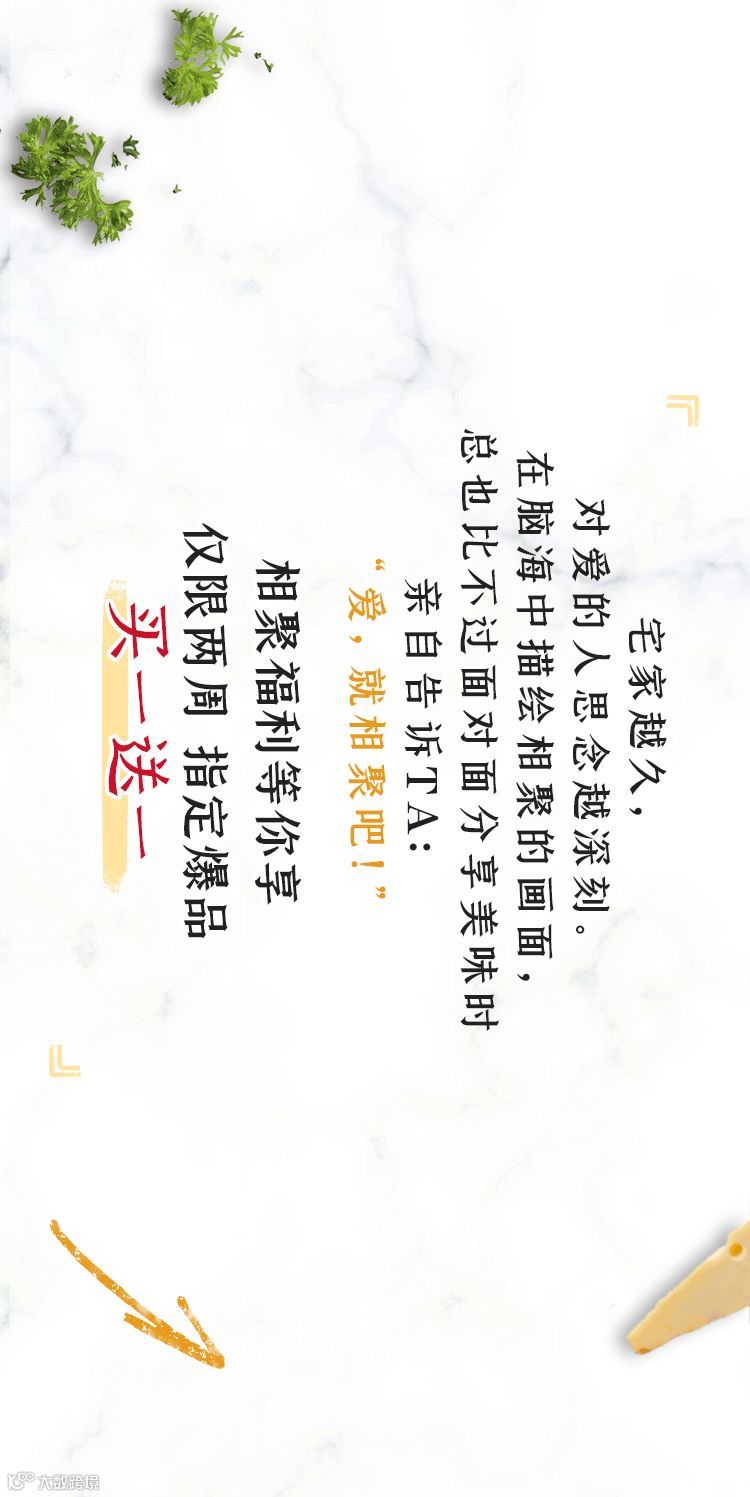 宅家越久，
对爱的人思念越深刻。
在脑海中描绘相聚的画面，
总也比不过面对面分享美味时
亲自告诉TA：
“爱，就相聚吧！”
相聚福利等你享
仅限两周 指定爆品
买一送一
大数跨境